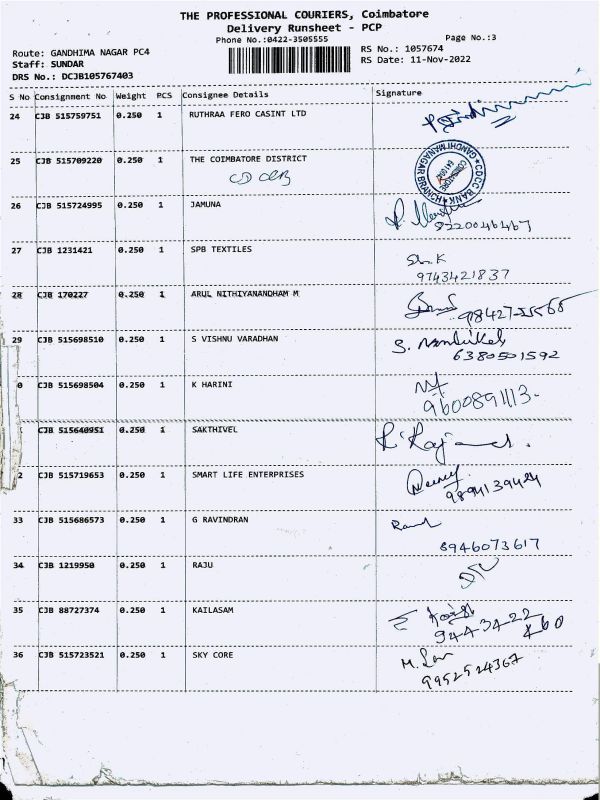 THE PROFESSIONAL COURIERS, Coimbatore
Delivery Runsheet - PCP
Phone No.:0422-3505555
Page No.:3
Route: GANDHIMA NAGAR PC4
RS No.: 1057674
Staff: SUNDAR
RS Date: 11-Nov-2022
DRS No.: DCJB105767403
S No Consignment No Weight PCS Consignee Details Signature
24 CJB 515759751 0.250 1 RUTHRAA FERO CASINT LTD
25 CJB 515709220 0.250 1 THE COIMBATORE DISTRICT
CDCC BANK
GANDHIMANAGAR BRANCH
COIMBATORE
26 CJB 515724995 0.250 1 JAMUNA
27 CJB 1231421 0.250 1 SPB TEXTILES
9743421837
28 CJB 170227 0.250 1 ARUL NITHIYANANDHAM M
29 CJB 515698510 0.250 1 S VISHNU VARADHAN
6380501592
0 CJB 515698504 0.250 1 K HARINI
9600891113.
CJB 515640951 0.250 1 SAKTHIVEL
2 CJB 515719653 0.250 1 SMART LIFE ENTERPRISES
9894139424
33 CJB 515686573 0.250 1 G RAVINDRAN
8946073617
34 CJB 1219950 0.250 1 RAJU
35 CJB 88727374 0.250 1 KAILASAM
9443422
460
36 CJB 515723521 0.250 1 SKY CORE
9952524367